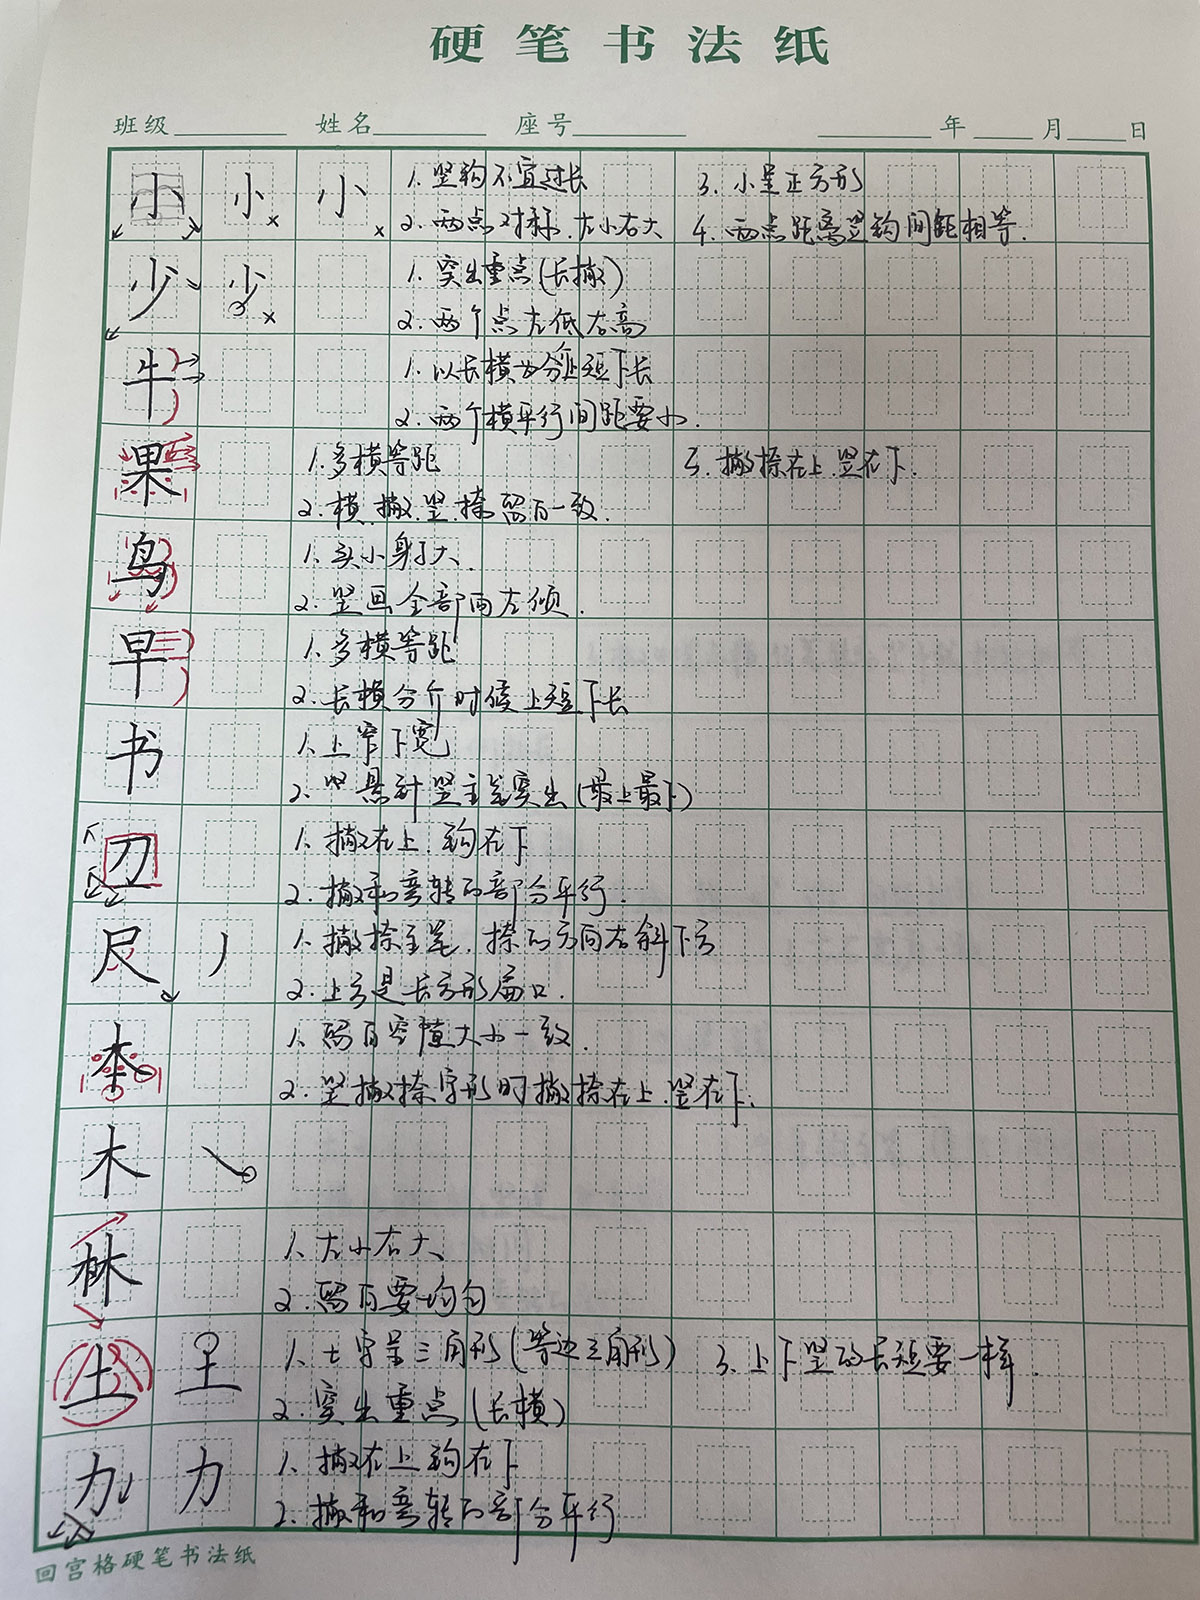 硬笔书法纸
班级 姓名 座号 年 月 日
小 小 小 1. 竖钩不宜过长 3. 小呈正方形
2. 两点对称.左小右大 4. 两点距离竖钩间距相等.
少 少 1. 突出重点(长撇)
2. 两个点左低右高
牛 1. 以长横为分止短下长
2. 两个横平行间距要小.
果 1. 多横等距 3. 撇捺在上.竖在下.
2. 横.撇.竖.捺留白一致.
鸟 1. 头小身子大.
2. 竖画全部向左倾.
早 1. 多横等距
2. 长横分介时候上短下长
书 1. 上窄下宽
2. 竖悬针竖主笔突出(最上最下)
刀 1. 撇在上.钩在下
2. 撇和弯转的部分平行.
尺 丿 1. 撇捺主笔.捺的方向右斜下方
2. 上方是长方形扁口.
本 1. 留白空隙大小一致.
2. 竖撇捺字形时撇捺在上.竖在下.
木 ㇏
林 1. 左小右大
2. 留白要均匀
土 土 1. 土字呈三角形(等边三角形) 3. 上下竖的长短要一样.
2. 突出重点(长横)
力 力 1. 撇在上钩在下
2. 撇和弯转的部分平行
回宫格硬笔书法纸